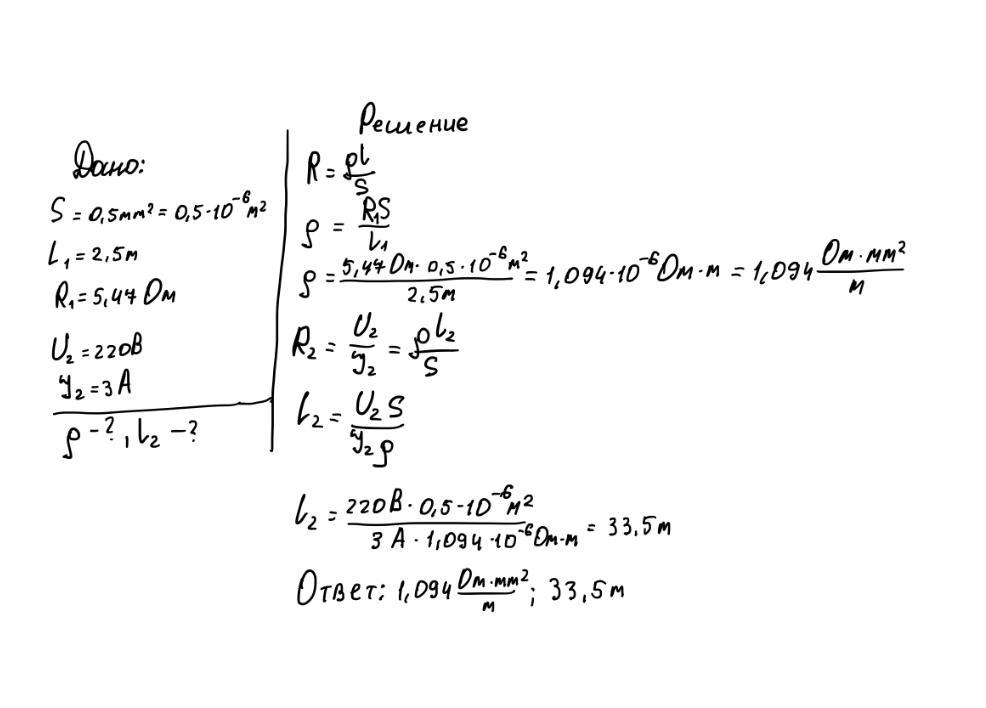 Дано:
S = 0,5мм² = 0,5·10⁻⁶м²
L₁ = 2,5м
R₁ = 5,47 Ом
U₂ = 220В
У₂ = 3 А
ρ - ?, L₂ - ?
Решение
R = ρL/S
ρ = R₁S/L₁
ρ = 5,47 Ом · 0,5 · 10⁻⁶м²/2,5м = 1,094·10⁻⁶ Ом·м = 1,094 Ом·мм²/м
R₂ = U₂/У₂ = ρL₂/S
L₂ = U₂S/У₂ρ
L₂ = 220В · 0,5·10⁻⁶м²/3 А · 1,094·10⁻⁶Ом·м = 33,5м
Ответ: 1,094 Ом·мм²/м; 33,5м